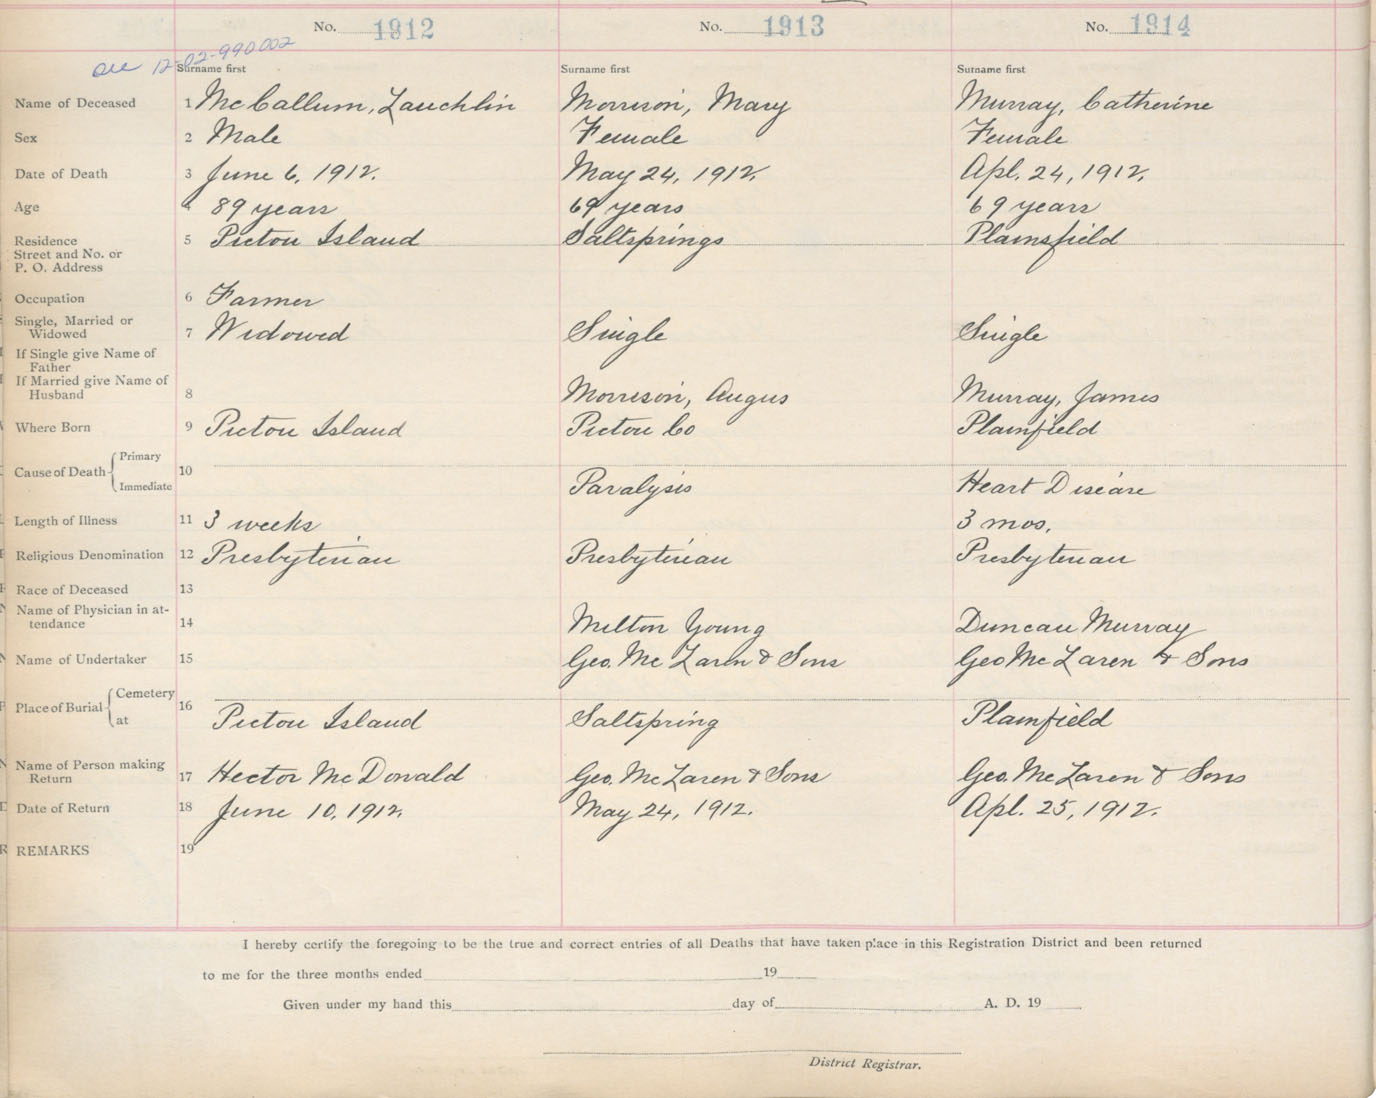 No. 1912 No. 1913 No. 1914
see 12-02-990002
Surname first Surname first Surname first
Name of Deceased 1 McCallum, Lauchlin Morrison, Mary Murray, Catherine
Sex 2 Male Female Female
Date of Death 3 June 6, 1912. May 24, 1912. Apl. 24, 1912.
Age 4 89 years 69 years 69 years
Residence 5 Pictou Island Saltsprings Plainsfield
Street and No. or
P. O. Address
Occupation 6 Farmer
Single, Married or
Widowed 7 Widowed Single Single
If Single give Name of
Father
If Married give Name of
Husband 8 Morrison, Angus Murray, James
Where Born 9 Pictou Island Pictou Co Plainfield
Cause of Death Primary 10
Immediate Paralysis Heart Disease
Length of Illness 11 3 weeks 3 mos.
Religious Denomination 12 Presbyterian Presbyterian Presbyterian
Race of Deceased 13
Name of Physician in at-
tendance 14 Melton Young Duncan Murray
Name of Undertaker 15 Geo. McLaren & Sons Geo McLaren & Sons
Place of Burial Cemetery 16
at Pictou Island Saltspring Plainfield
Name of Person making
Return 17 Hector McDonald Geo. McLaren & Sons Geo. McLaren & Sons
Date of Return 18 June 10, 1912. May 24, 1912. Apl. 25, 1912.
REMARKS 19
I hereby certify the foregoing to be the true and correct entries of all Deaths that have taken place in this Registration District and been returned
to me for the three months ended 19
Given under my hand this day of A. D. 19
District Registrar.